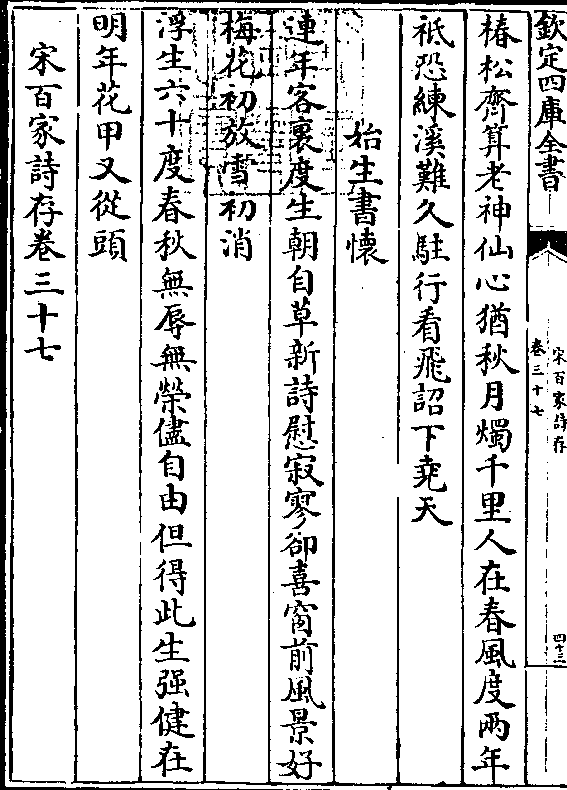 欽定四庫全書
宋百家詩存
卷三十七
四十三
椿松齊算老神仙心猶秋月燭千里人在春風度兩年
祇恐練溪難久駐行看飛詔下堯天
始生書懷
連年客裏度生朝自草新詩慰寂寥卻喜窗前風景好
梅花初放雪初消
浮生六十度春秋無辱無榮儘自由但得此生强健在
明年花甲又從頭
宋百家詩存卷三十七